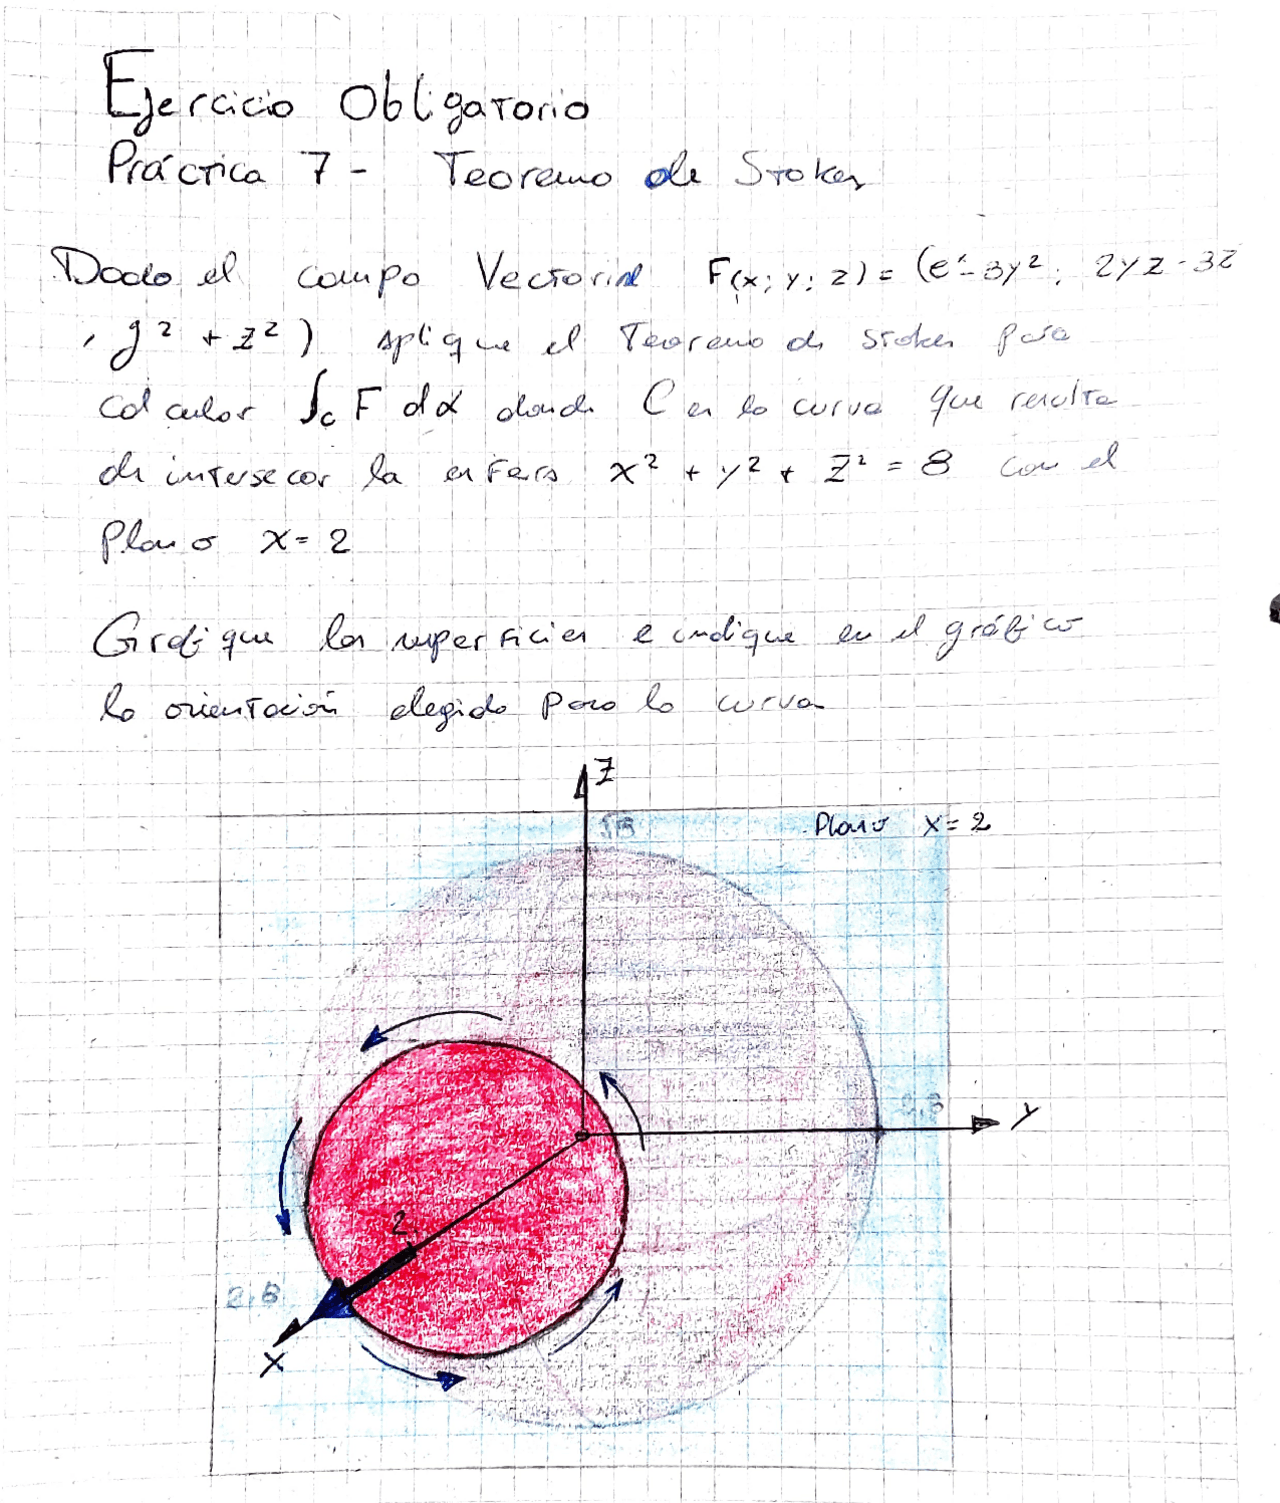 Ejercicio Obligatorio
Práctica 7 - Teorema de Stokes
Dado el campo Vectorial F(x; y; z) = (eˣ - 3y²; 2yz - 3z
, y² + z²) aplique el Teorema de Stokes para
calcular ∫c F dα donde C es la curva que resulta
de intersecar la esfera x² + y² + z² = 8 con el
Plano x = 2
Grafique las superficies e indique en el gráfico
la orientación elegida para la curva
Z
√8
Plano x = 2
2,8
Y
2
2,8
X